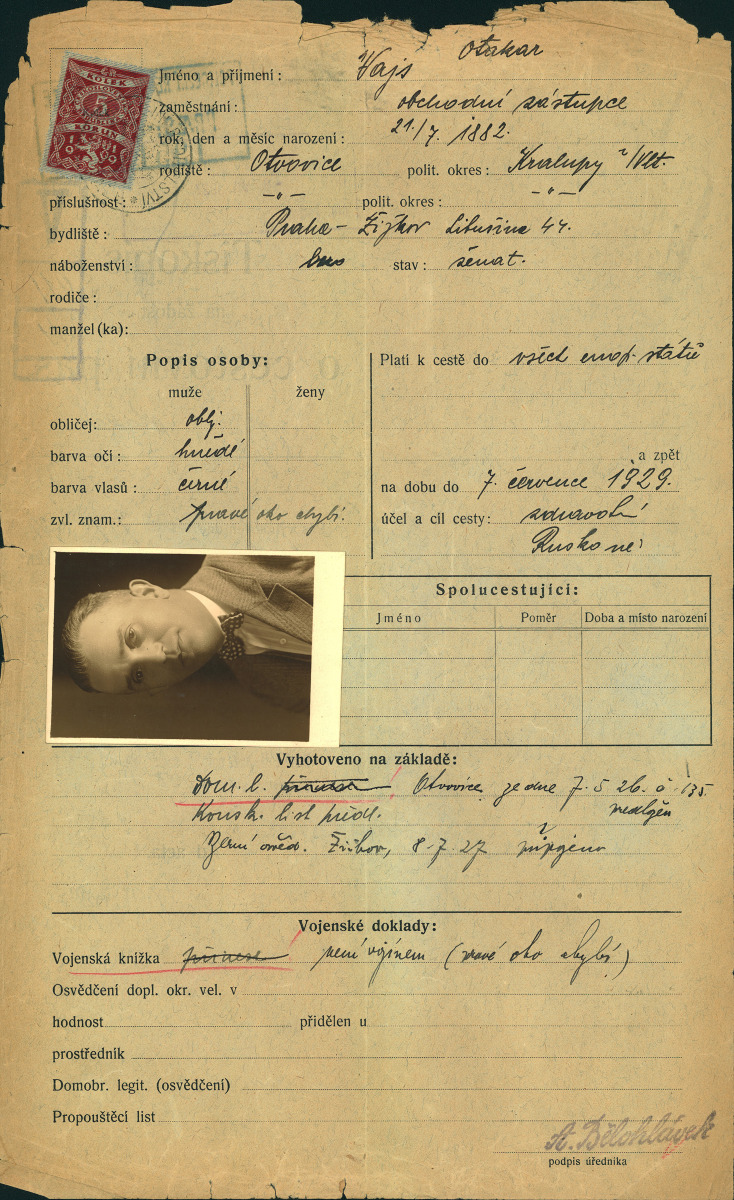 KOLEK
ČESKOSLOVENSKÝ
5
KORUN
Otakar
Jméno a příjmení: Vajs
zaměstnání: obchodní zástupce
rok, den a měsíc narození: 21./7. 1882.
rodiště: Otvovice polit. okres: Kralupy n/Vlt.
příslušnost: —„— polit. okres: —„—
bydliště: Praha - Žižkov Libušina 44.
náboženství: bez stav: ženat.
rodiče:
manžel(ka):
Popis osoby: Platí k cestě do všech evrop. států
muže ženy
obličej: oblý.
barva očí: hnědé a zpět
barva vlasů: černé na dobu do 7. července 1929.
zvl. znam.: pravé oko chybí. účel a cíl cesty: zdravotní
Rusko ne!
Spolucestující:
Jméno Poměr Doba a místo narození
Vyhotoveno na základě:
Dom. l. přinese! Otvovice ze dne 7. 5 26. č 135
Konsk. list předl.
Žižkov, 8-7-27 připojeno
Vojenské doklady:
Vojenská knížka přinese! není vojínem (pravé oko chybí)
Osvědčení dopl. okr. vel. v
hodnost přidělen u
prostředník
Domobr. legit. (osvědčení)
Propouštěcí list
A. Bělohlávek
podpis úředníka